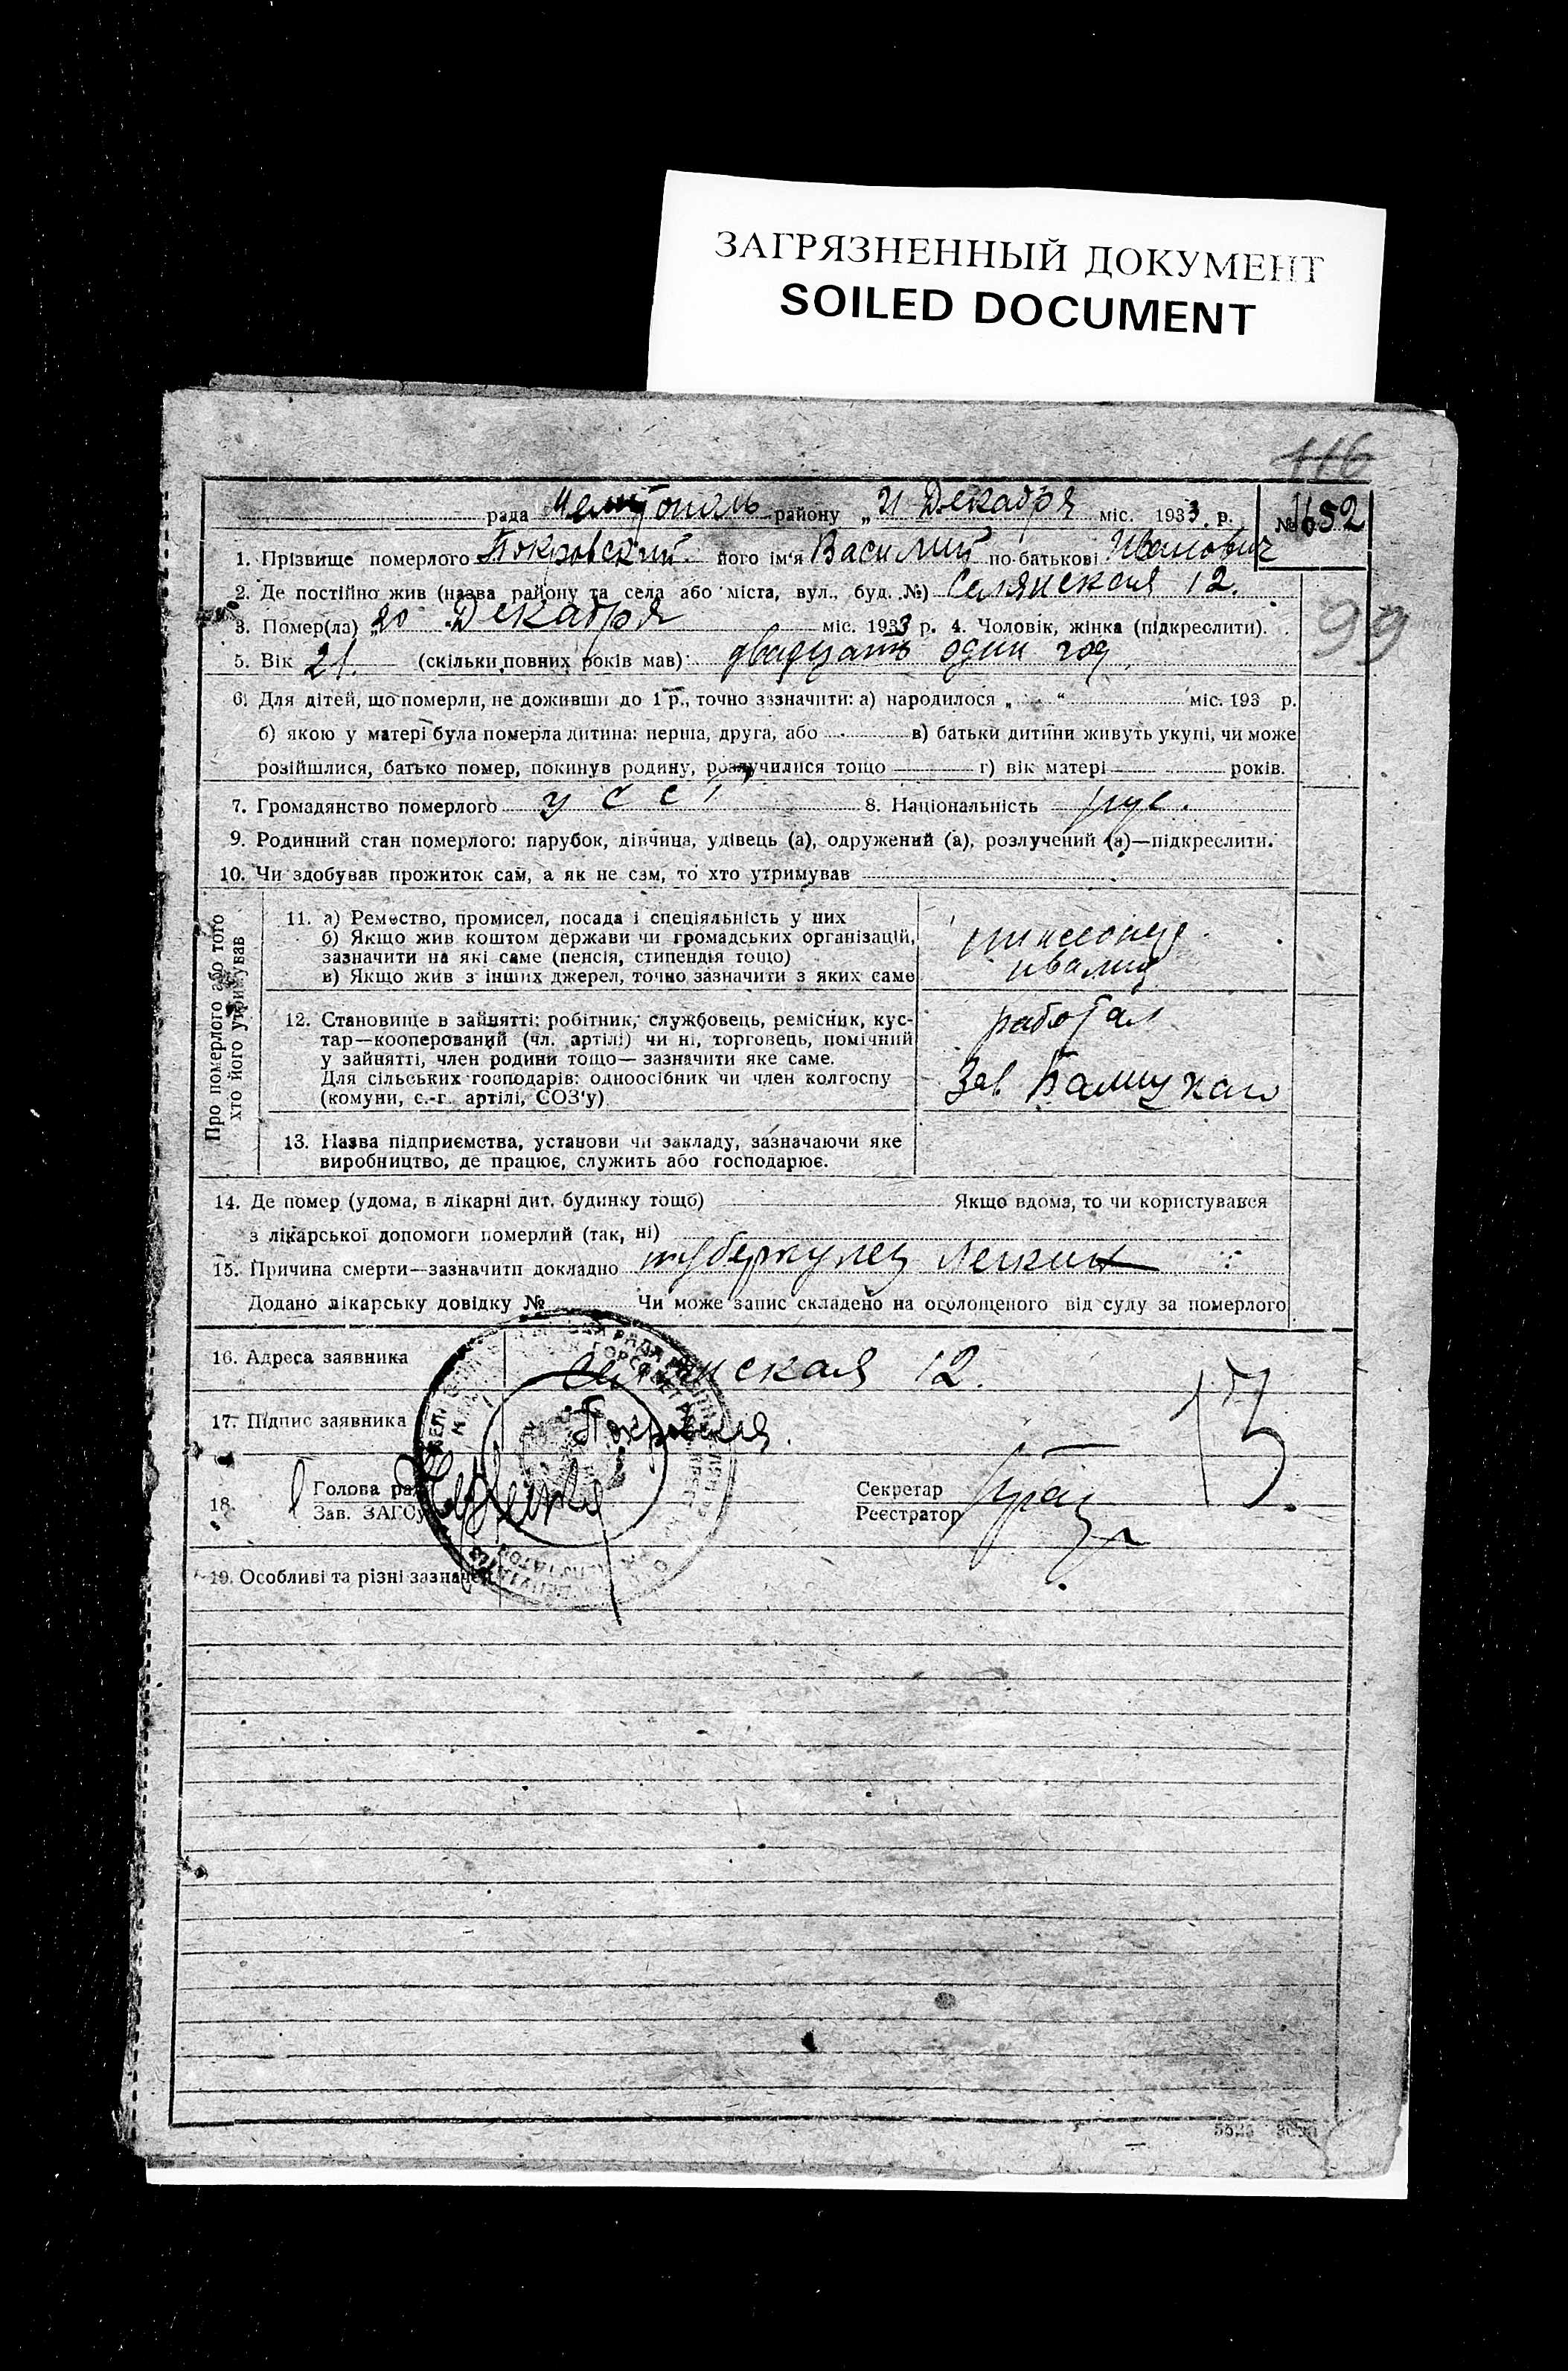 ЗАГРЯЗНЕННЫЙ ДОКУМЕНТ
SOILED DOCUMENT
116
рада Мелитополь району „21 Декабря міс. 1933 р. № 1652
1. Прізвище померлого Покровский його ім'я Василий по-батькові Иванович
2. Де постійно жив (назва району та села або міста, вул., буд. №) Селянская 12.
3. Помер(ла) „20 Декабря міс. 1933 р. 4. Чоловік, жінка (підкреслити).
99
5. Вік 21. (скільки повних років мав) двадцать один год
6. Для дітей, що померли, не доживши до 1 р., точно зазначити: а) народилося „ “ міс. 193 р.
б) якою у матері була померла дитина: перша, друга, або в) батьки дитини живуть укупі, чи може
розійшлися, батько помер, покинув родину, розлучилися тощо г) вік матері років.
7. Громадянство померлого У С С Р 8. Національність рус.
9. Родинний стан померлого: парубок, дівчина, удівець (а), одружений (а), розлучений (а)—підкреслити.
10. Чи здобував прожиток сам, а як не сам, то хто утримував
Про померлого або того
хто його утримував
11. а) Ремество, промисел, посада і спеціяльність у них
б) Якщо жив коштом держави чи громадських організацій,
зазначити на які саме (пенсія, стипендія тощо)
в) Якщо жив з інших джерел, точно зазначити з яких саме
12. Становище в зайнятті: робітник, службовець, ремісник, кус-
тар—кооперований (чл. артілі) чи ні, торговець, помічний
у зайнятті, член родини тощо— зазначити яке саме.
Для сільських господарів: одноосібник чи член колгоспу
(комуни, с.-г. артілі, СОЗ'у)
работал
Зав.
13. Назва підприємства, установи чи закладу, зазначаючи яке
виробництво, де працює, служить або господарює.
14. Де помер (удома, в лікарні дит. будинку тощо) Якщо вдома, то чи користувався
з лікарської допомоги померлий (так, ні)
15. Причина смерти—зазначити докладно туберкулез легких
Додано лікарську довідку № Чи може запис складено на оголощеного від суду за померлого
16. Адреса заявника Селянская 12.
17. Підпис заявника Покровская
18. Голова ра
Зав. ЗАГСу
Секретар
Реєстратор
19. Особливі та різні зазначен